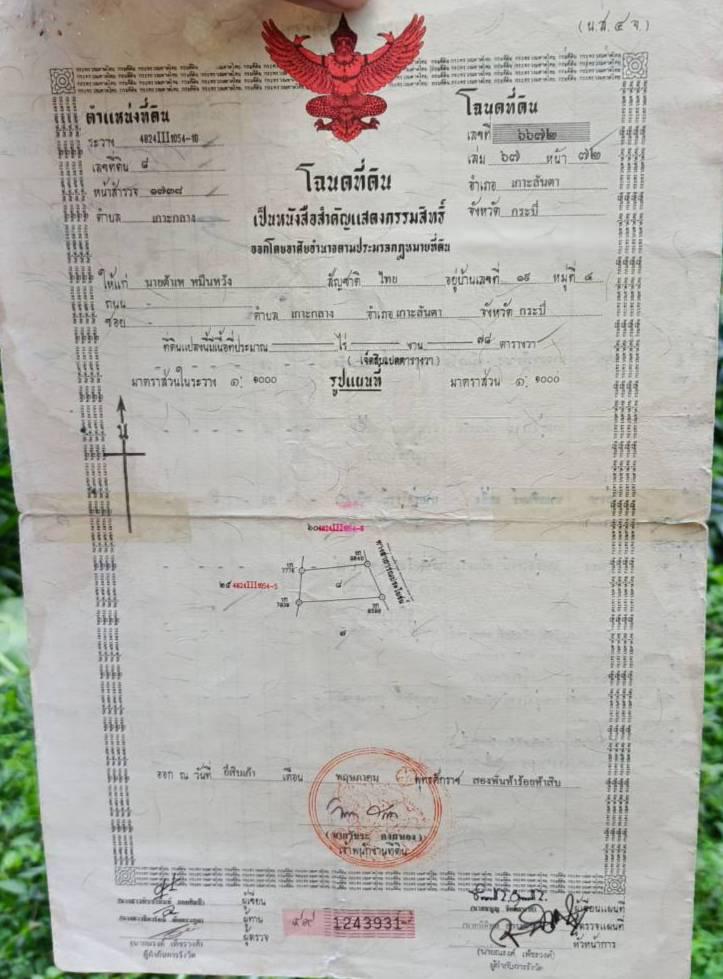 (น.ส.๔ จ.)
ตำแหน่งที่ดิน
ระวาง 4824III1054-10
เลขที่ดิน ๘
หน้าสำรวจ ๑๗๓๘
ตำบล เกาะกลาง
โฉนดที่ดิน
เลขที่ ๖๖๗๒
เล่ม ๖๗ หน้า ๗๒
อำเภอ เกาะลันตา
จังหวัด กระบี่
โฉนดที่ดิน
เป็นหนังสือสำคัญแสดงกรรมสิทธิ์
ออกโดยอาศัยอำนาจตามประมวลกฎหมายที่ดิน
ให้แก่ หมีนหวัง สัญชาติ ไทย อยู่บ้านเลขที่ ๑๙ หมู่ที่ ๔
ถนน -
ซอย - ตำบล เกาะกลาง อำเภอ เกาะลันตา จังหวัด กระบี่
ที่ดินแปลงนี้มีเนื้อที่ประมาณ ไร่ งาน ๗๘ ตารางวา
(เจ็ดสิบแปดตารางวา)
มาตราส่วนในระวาง ๑: ๑๐๐๐ รูปแผนที่ มาตราส่วน ๑: ๑๐๐๐
น
4824III1054-6
๒๕ 4824III1054-5
๘
๗
ออก ณ วันที่ ยี่สิบเก้า เดือน พฤษภาคม พุทธศักราช สองพันห้าร้อยห้าสิบ
เจ้าพนักงานที่ดิน
ผู้เขียน
ผู้ทาน
ผู้ตรวจ
๕๙ 1243931
ผู้เขียนแผนที่
ผู้ตรวจแผนที่
หัวหน้าการ
(นายณรงค์ เพ็ชรวงศ์)
ผู้กำกับการรังวัด
(นายณรงค์ เพ็ชรวงศ์)
ผู้กำกับการรังวัด